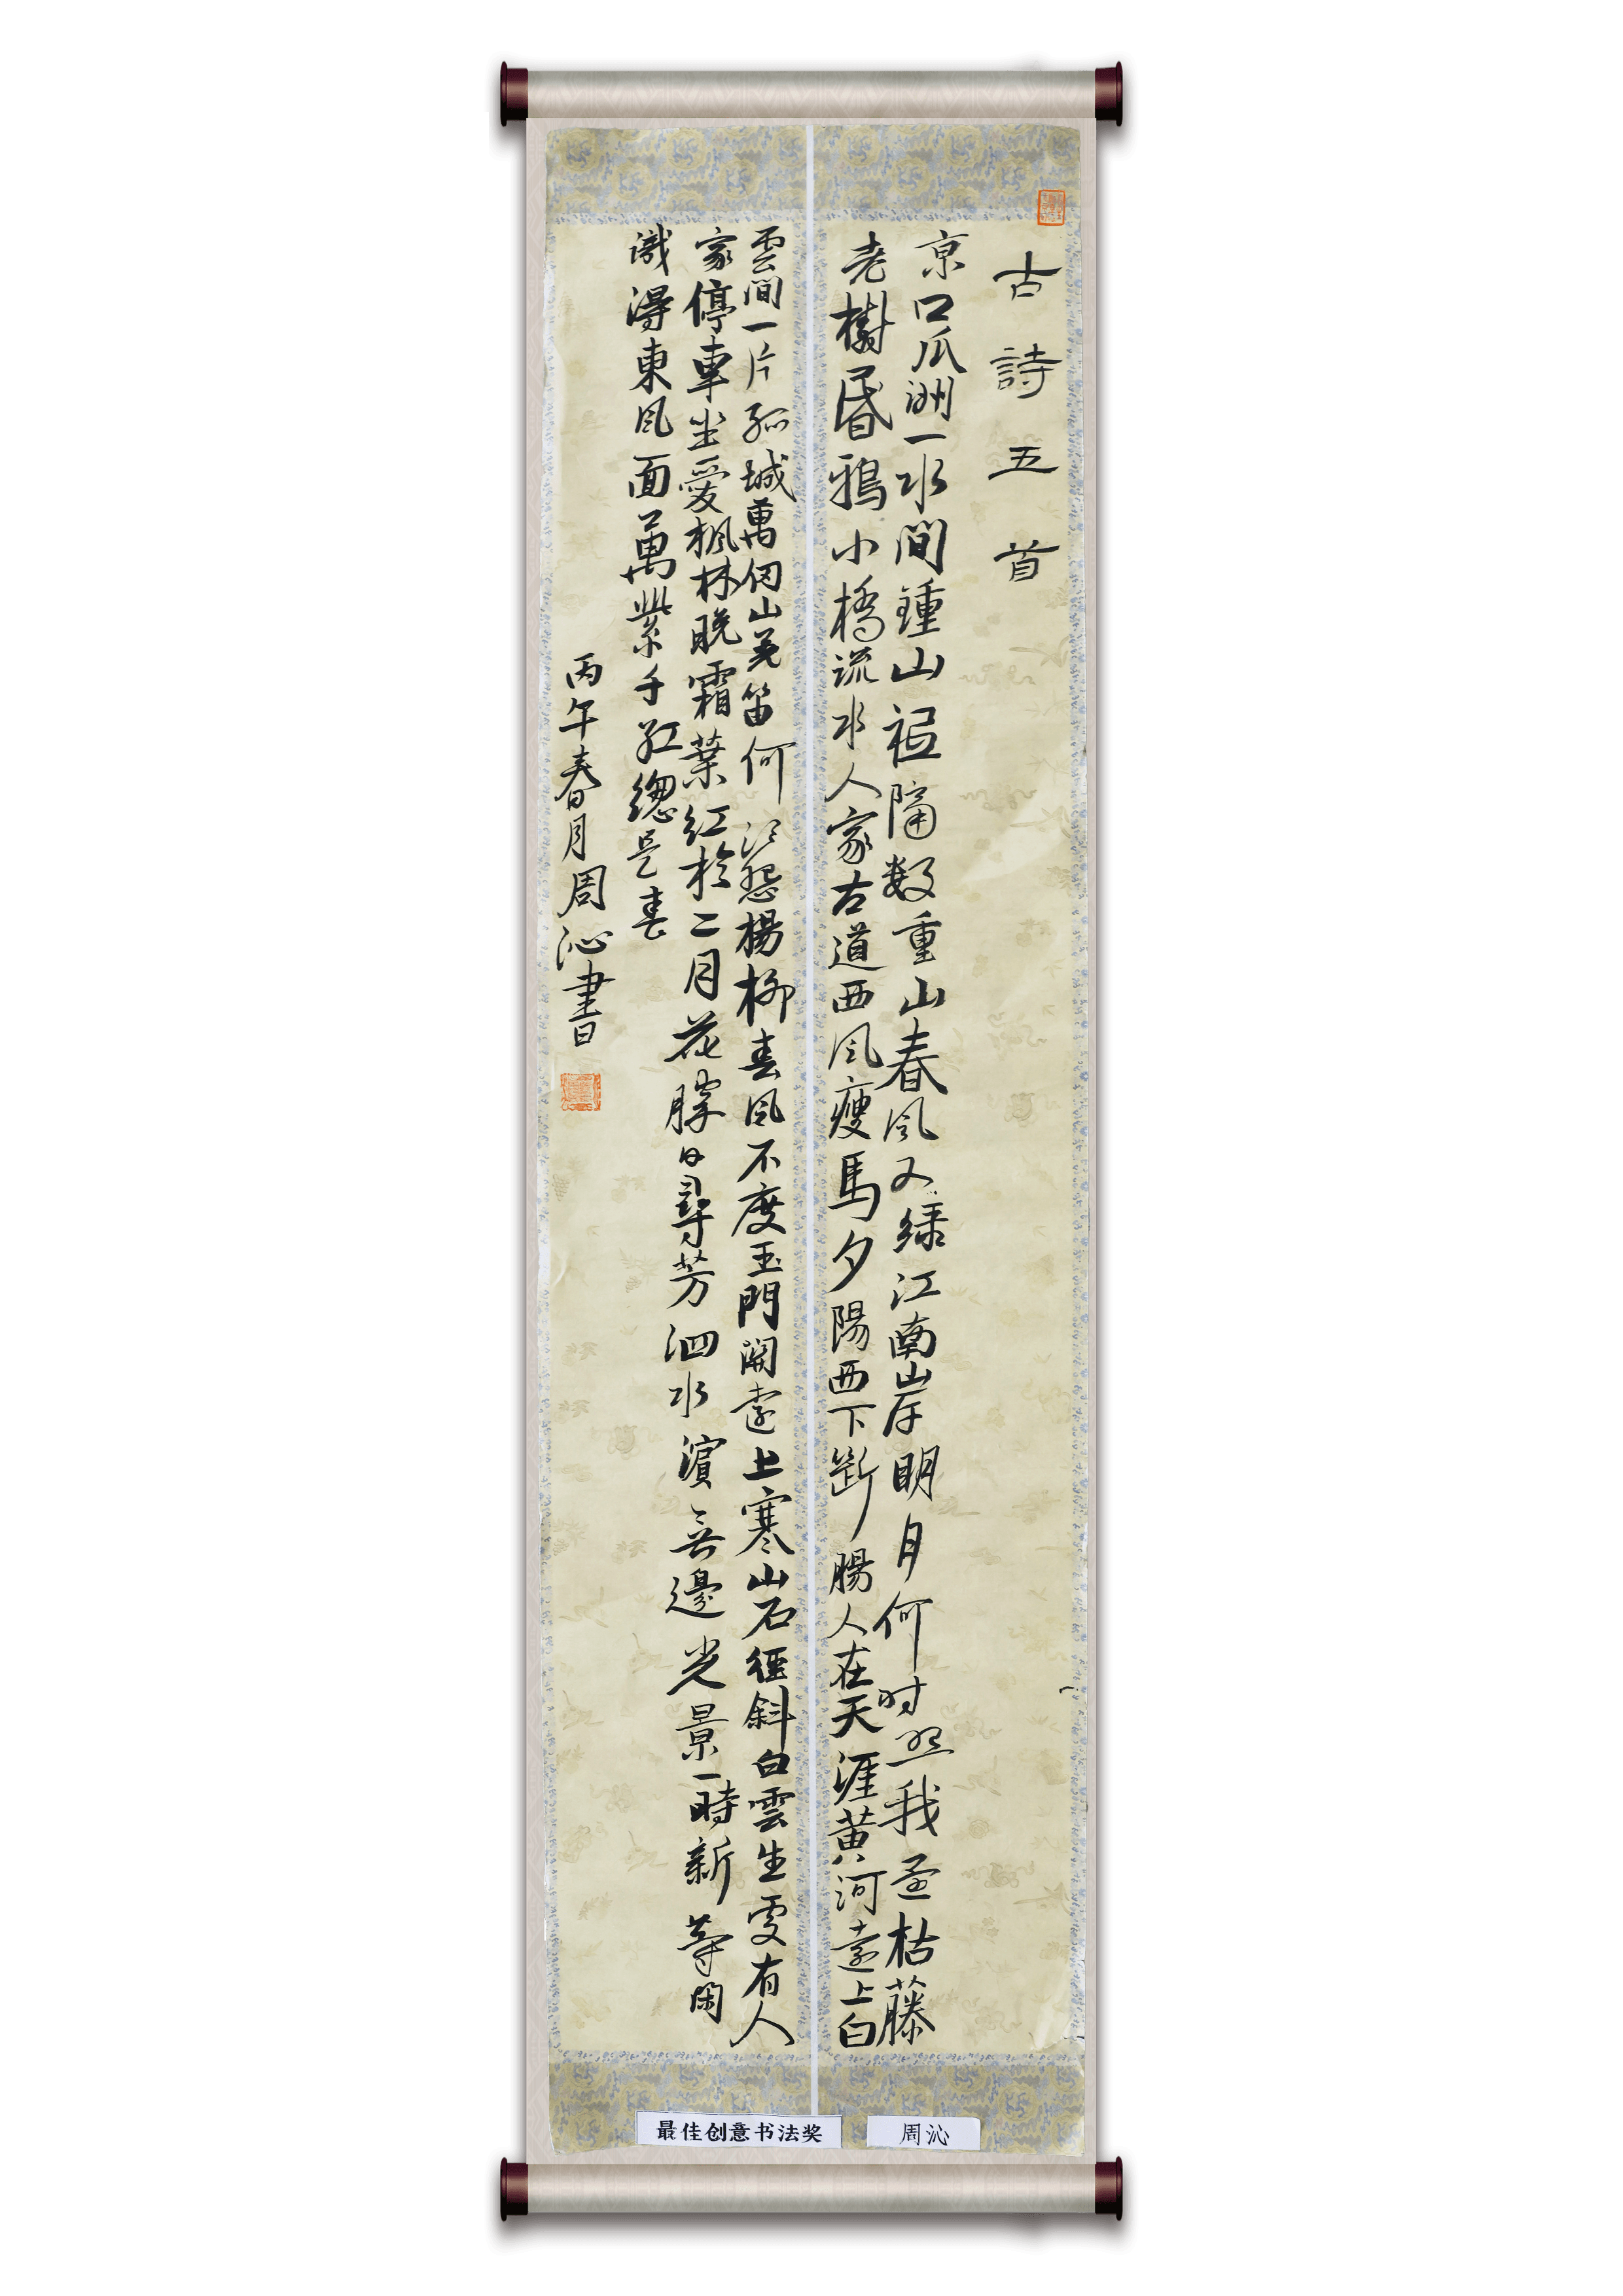 古詩五首
京口瓜洲一水間鍾山祗隔数重山春风又绿江南岸明月何时照我還枯藤
老樹昏鴉小橋流水人家古道西风瘦馬夕陽西下斷腸人在天涯黄河遠上白
雲間一片孤城萬仞山羌笛何须怨楊柳春风不度玉門關遠上寒山石徑斜白雲生處有人
家停車坐愛楓林晚霜葉紅於二月花勝日尋芳泗水濱無邊光景一時新等閑
識得東风面萬紫千紅總是春
丙午春月周沁書
最佳创意书法奖
周沁